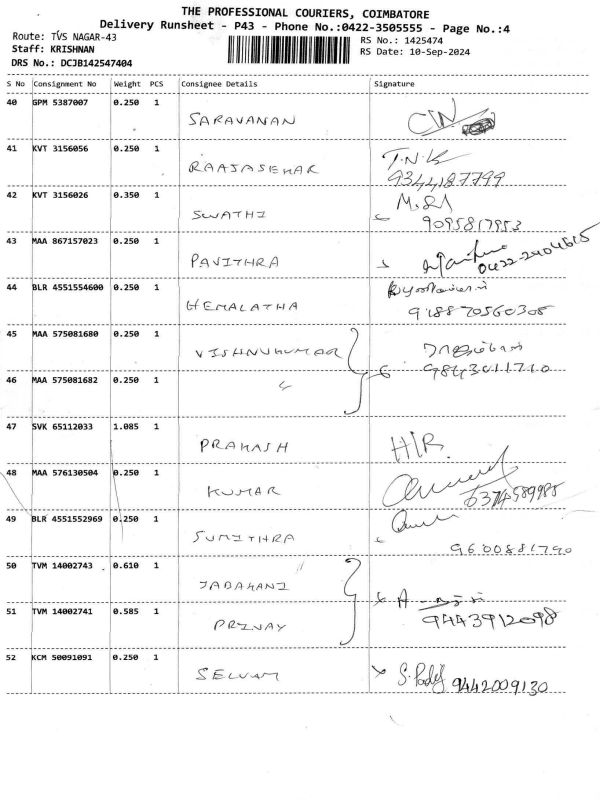 THE PROFESSIONAL COURIERS, COIMBATORE
Delivery Runsheet - P43 - Phone No.:0422-3505555 - Page No.:4
Route: TVS NAGAR-43
RS No.: 1425474
Staff: KRISHNAN
RS Date: 10-Sep-2024
DRS No.: DCJB142547404
S No Consignment No Weight PCS Consignee Details Signature
40 GPM 5387007 0.250 1 SARAVANAN
41 KVT 3156056 0.250 1 RAAJASEKAR T.N.K
9344187799
42 KVT 3156026 0.350 1 SWATHI
9095817953
43 MAA 867157023 0.250 1 PAVITHRA
0422-2404615
44 BLR 4551554600 0.250 1 HEMALATHA
918870560305
45 MAA 575081680 0.250 1 VISHNUKUMAR
9843011710
46 MAA 575081682 0.250 1
47 SVK 65112033 1.085 1 PRAKASH H/R.
48 MAA 576130504 0.250 1 KUMAR
6374589985
49 BLR 4551552969 0.250 1 SUMITHRA
9600881790
50 TVM 14002743 0.610 1
51 TVM 14002741 0.585 1 PRINAY
9443912098
52 KCM 50091091 0.250 1 SELVAM 9442009130